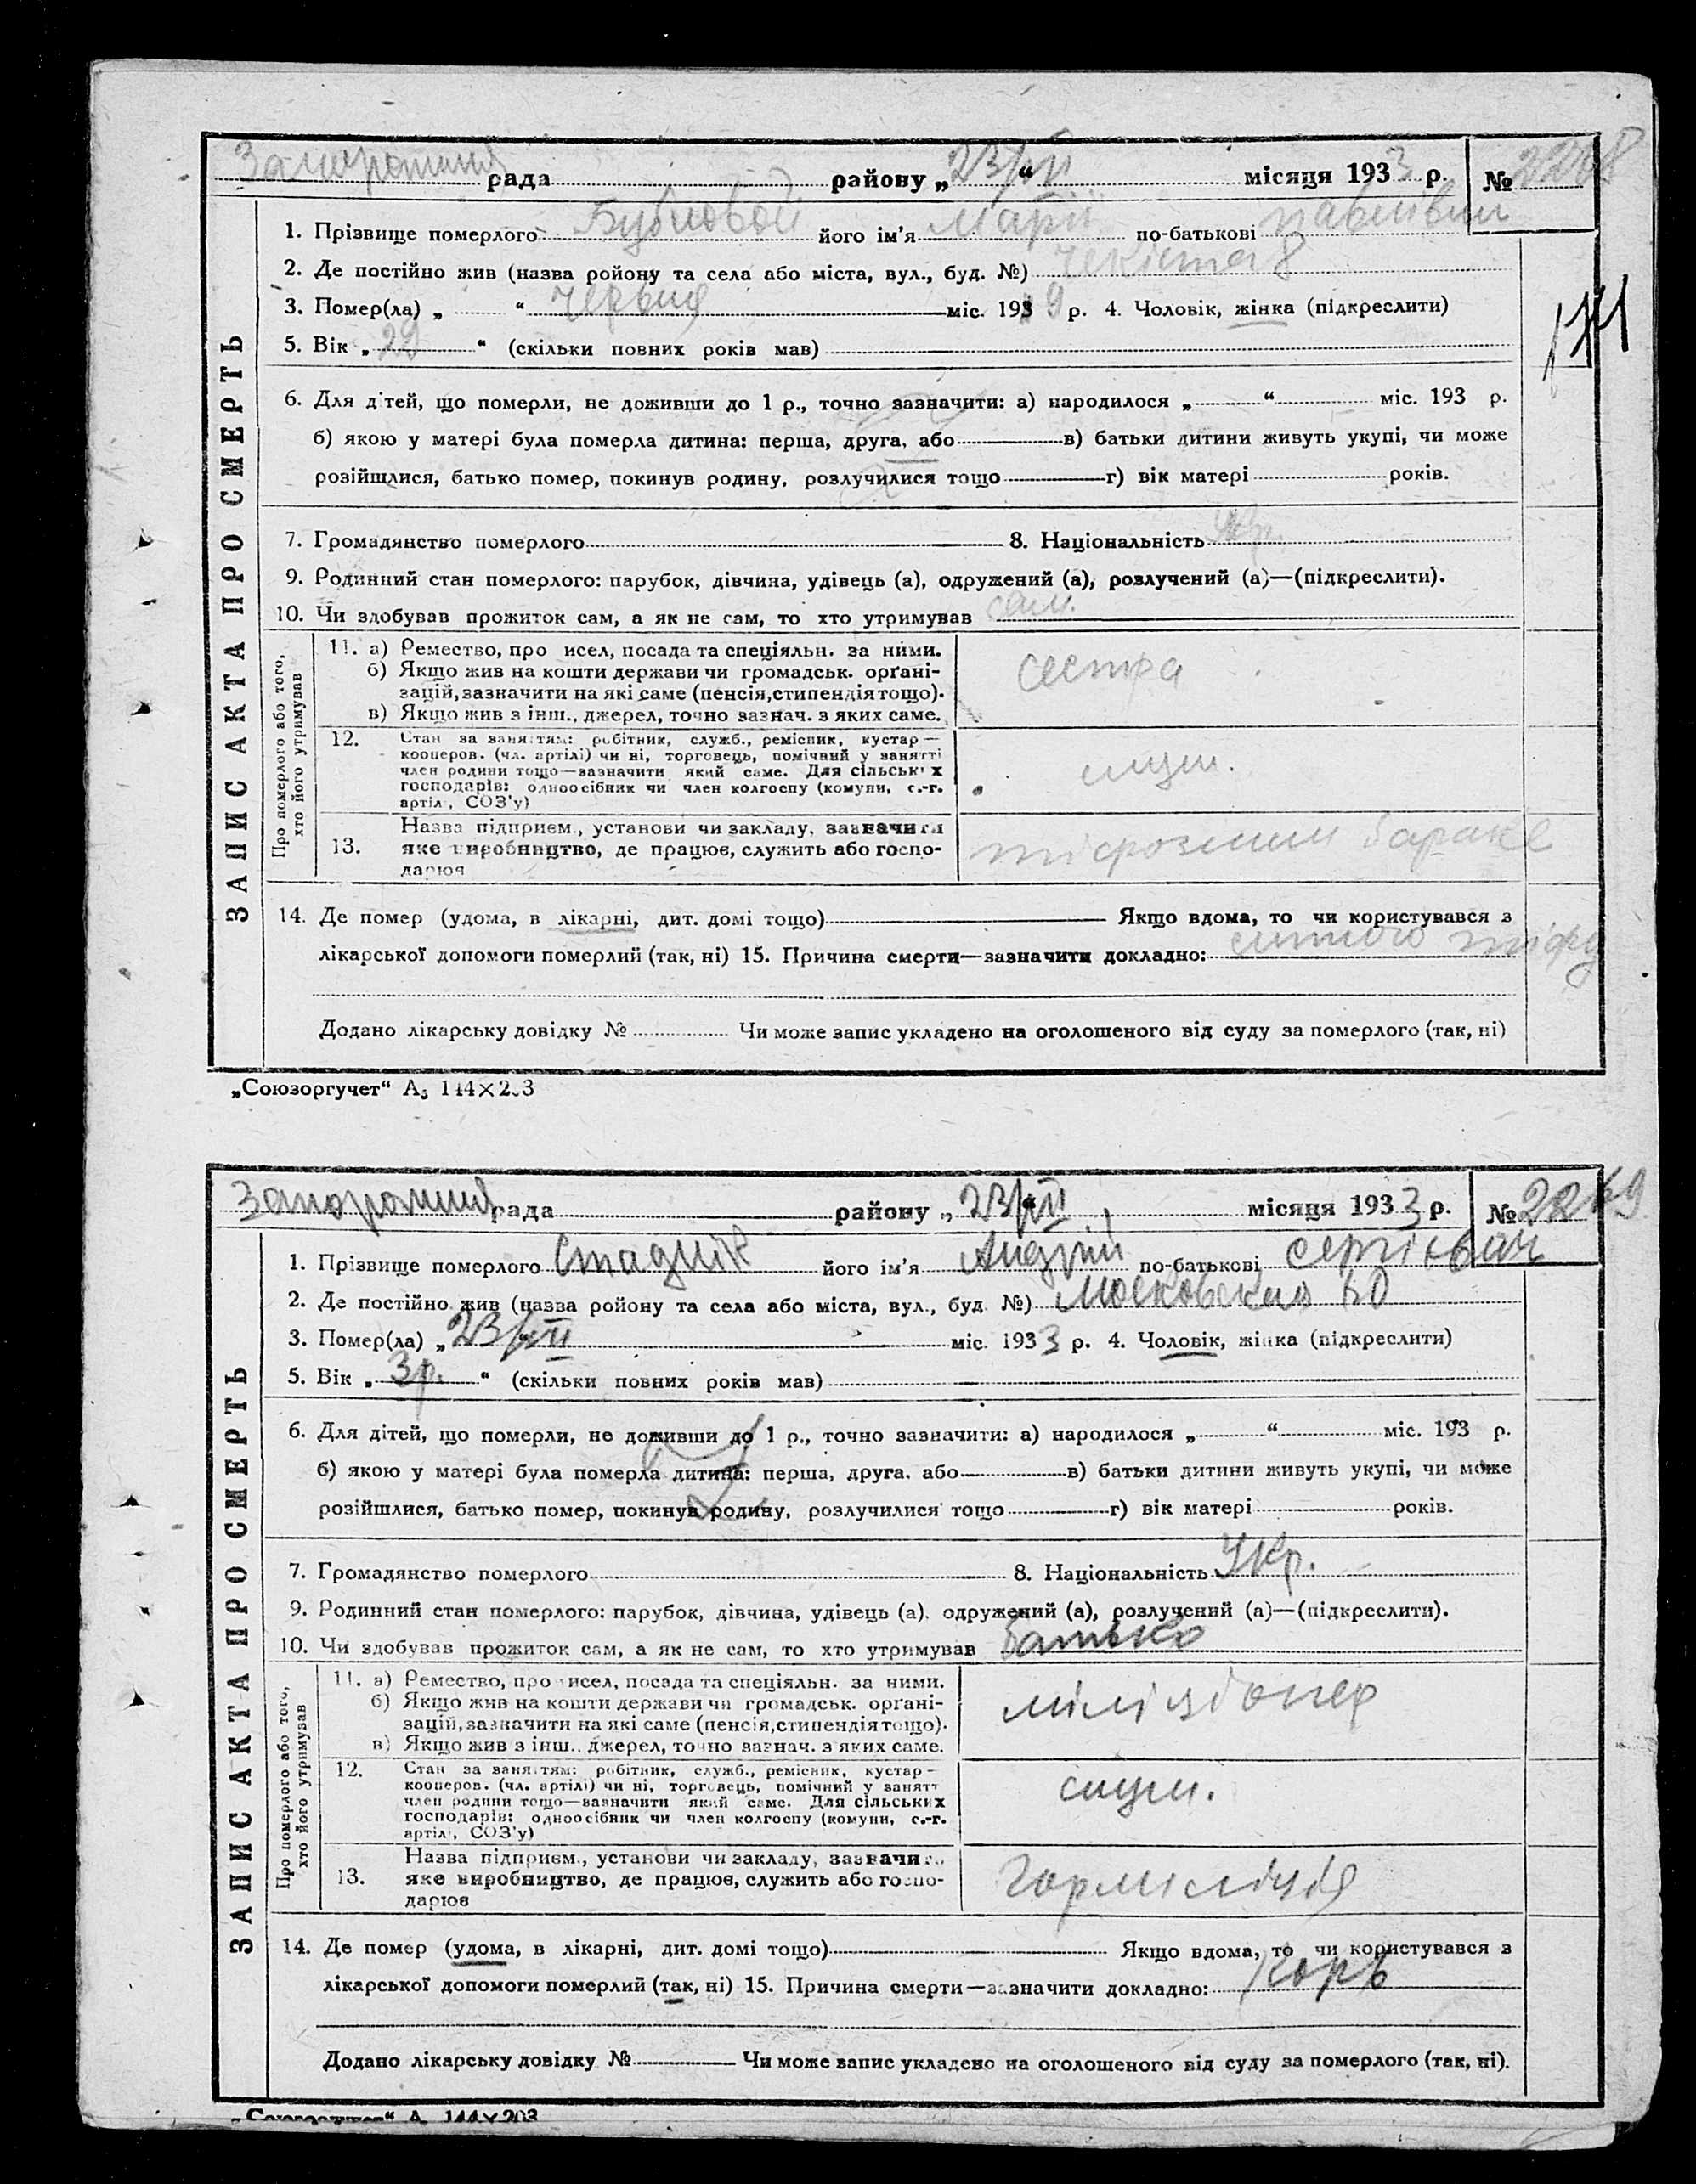 рада району „23/VII“ місяця 1933 р. №2268
1. Прізвище померлого Бубновой його ім’я Марії по-батькові Павлівни
2. Де постійно жив (назва ройону та села або міста, вул., буд. №) Чекіста 8
3. Помер(ла) „ “ червня міс. 193 9 р. 4. Чоловік, жінка (підкреслити)
5. Вік „29“ (скільки повних років мав)
171
6. Для дітей, що померли, не доживши до 1 р., точно зазначити: а) народилося „ “ міс. 193 р.
б) якою у матері була померла дитина: перша, друга, або в) батьки дитини живуть укупі, чи може
розійшлися, батько помер, покинув родину, розлучилися тощо г) вік матері років.
7. Громадянство померлого 8. Національність Укр.
9. Родинний стан померлого: парубок, дівчина, удівець (а), одружений (а), розлучений (а)—(підкреслити).
10. Чи здобував прожиток сам, а як не сам, то хто утримував сам.
ЗАПИС АКТА ПРО СМЕРТЬ
Про померлого або того, хто його утримував
11. а) Ремество, про исел, посада та спеціяльн. за ними.
б) Якщо жив на кошти держави чи громадськ. орґані-
зацій, зазначити на які саме (пенсія, стипендія тощо).
в) Якщо жив з інш., джерел, точно зазнач. з яких саме.
сестра
12. Стан за заняттям: робітник, служб., ремісник, кустар—
кооперов. (чл. артілі) чи ні, торговець, помічний у занятті
член родини тощо—зазначити який саме. Для сільських
господарів: одноосібник чи член колгоспу (комуни, с.-г.
артілі, СОЗ’у)
служ.
13. Назва підприєм., установи чи закладу, зазначити
яке виробництво, де працює, служить або госпо-
дарює
тіфозний бараке
14. Де помер (удома, в лікарні, дит. домі тощо) Якщо вдома, то чи користувався з
лікарської допомоги померлий (так, ні) 15. Причина смерти—зазначити докладно: сипного тіфу
Додано лікарську довідку № Чи може запис укладено на оголошеного від суду за померлого (так, ні)
„Союзоргучет“ А5 144×203
рада району „23/VII“ місяця 1933 р. №2269
1. Прізвище померлого Стаднік його ім’я Андрій по-батькові Сергієвич
2. Де постійно жив (назва ройону та села або міста, вул., буд. №) Московская 50
3. Помер(ла) „23/VII“ міс. 1933 р. 4. Чоловік, жінка (підкреслити)
5. Вік „3р.“ (скільки повних років мав)
6. Для дітей, що померли, не доживши до 1 р., точно зазначити: а) народилося „ “ міс. 193 р.
б) якою у матері була померла дитина: перша, друга, або в) батьки дитини живуть укупі, чи може
розійшлися, батько помер, покинув родину, розлучилися тощо г) вік матері років.
7. Громадянство померлого 8. Національність Укр.
9. Родинний стан померлого: парубок, дівчина, удівець (а), одружений (а), розлучений (а)—(підкреслити).
10. Чи здобував прожиток сам, а як не сам, то хто утримував батько
ЗАПИС АКТА ПРО СМЕРТЬ
Про померлого або того, хто його утримував
11. а) Ремество, про исел, посада та спеціяльн. за ними.
б) Якщо жив на кошти держави чи громадськ. орґані-
зацій, зазначити на які саме (пенсія, стипендія тощо).
в) Якщо жив з інш., джерел, точно зазнач. з яких саме.
міліціонер
12. Стан за заняттям: робітник, служб., ремісник, кустар—
кооперов. (чл. артілі) чи ні, торговець, помічний у занятт
член родини тощо—зазначити який саме. Для сільських
господарів: одноосібник чи член колгоспу (комуни, с.-г.
артілі, СОЗ’у)
служ.
13. Назва підприєм., установи чи закладу, зазначити
яке виробництво, де працює, служить або госпо-
дарює
Горміліція
14. Де помер (удома, в лікарні, дит. домі тощо) Якщо вдома, то чи користувався з
лікарської допомоги померлий (так, ні) 15. Причина смерти—зазначити докладно: Корь
Додано лікарську довідку № Чи може запис укладено на оголошеного від суду за померлого (так, ні).
„Союзоргучет“ А 144×203